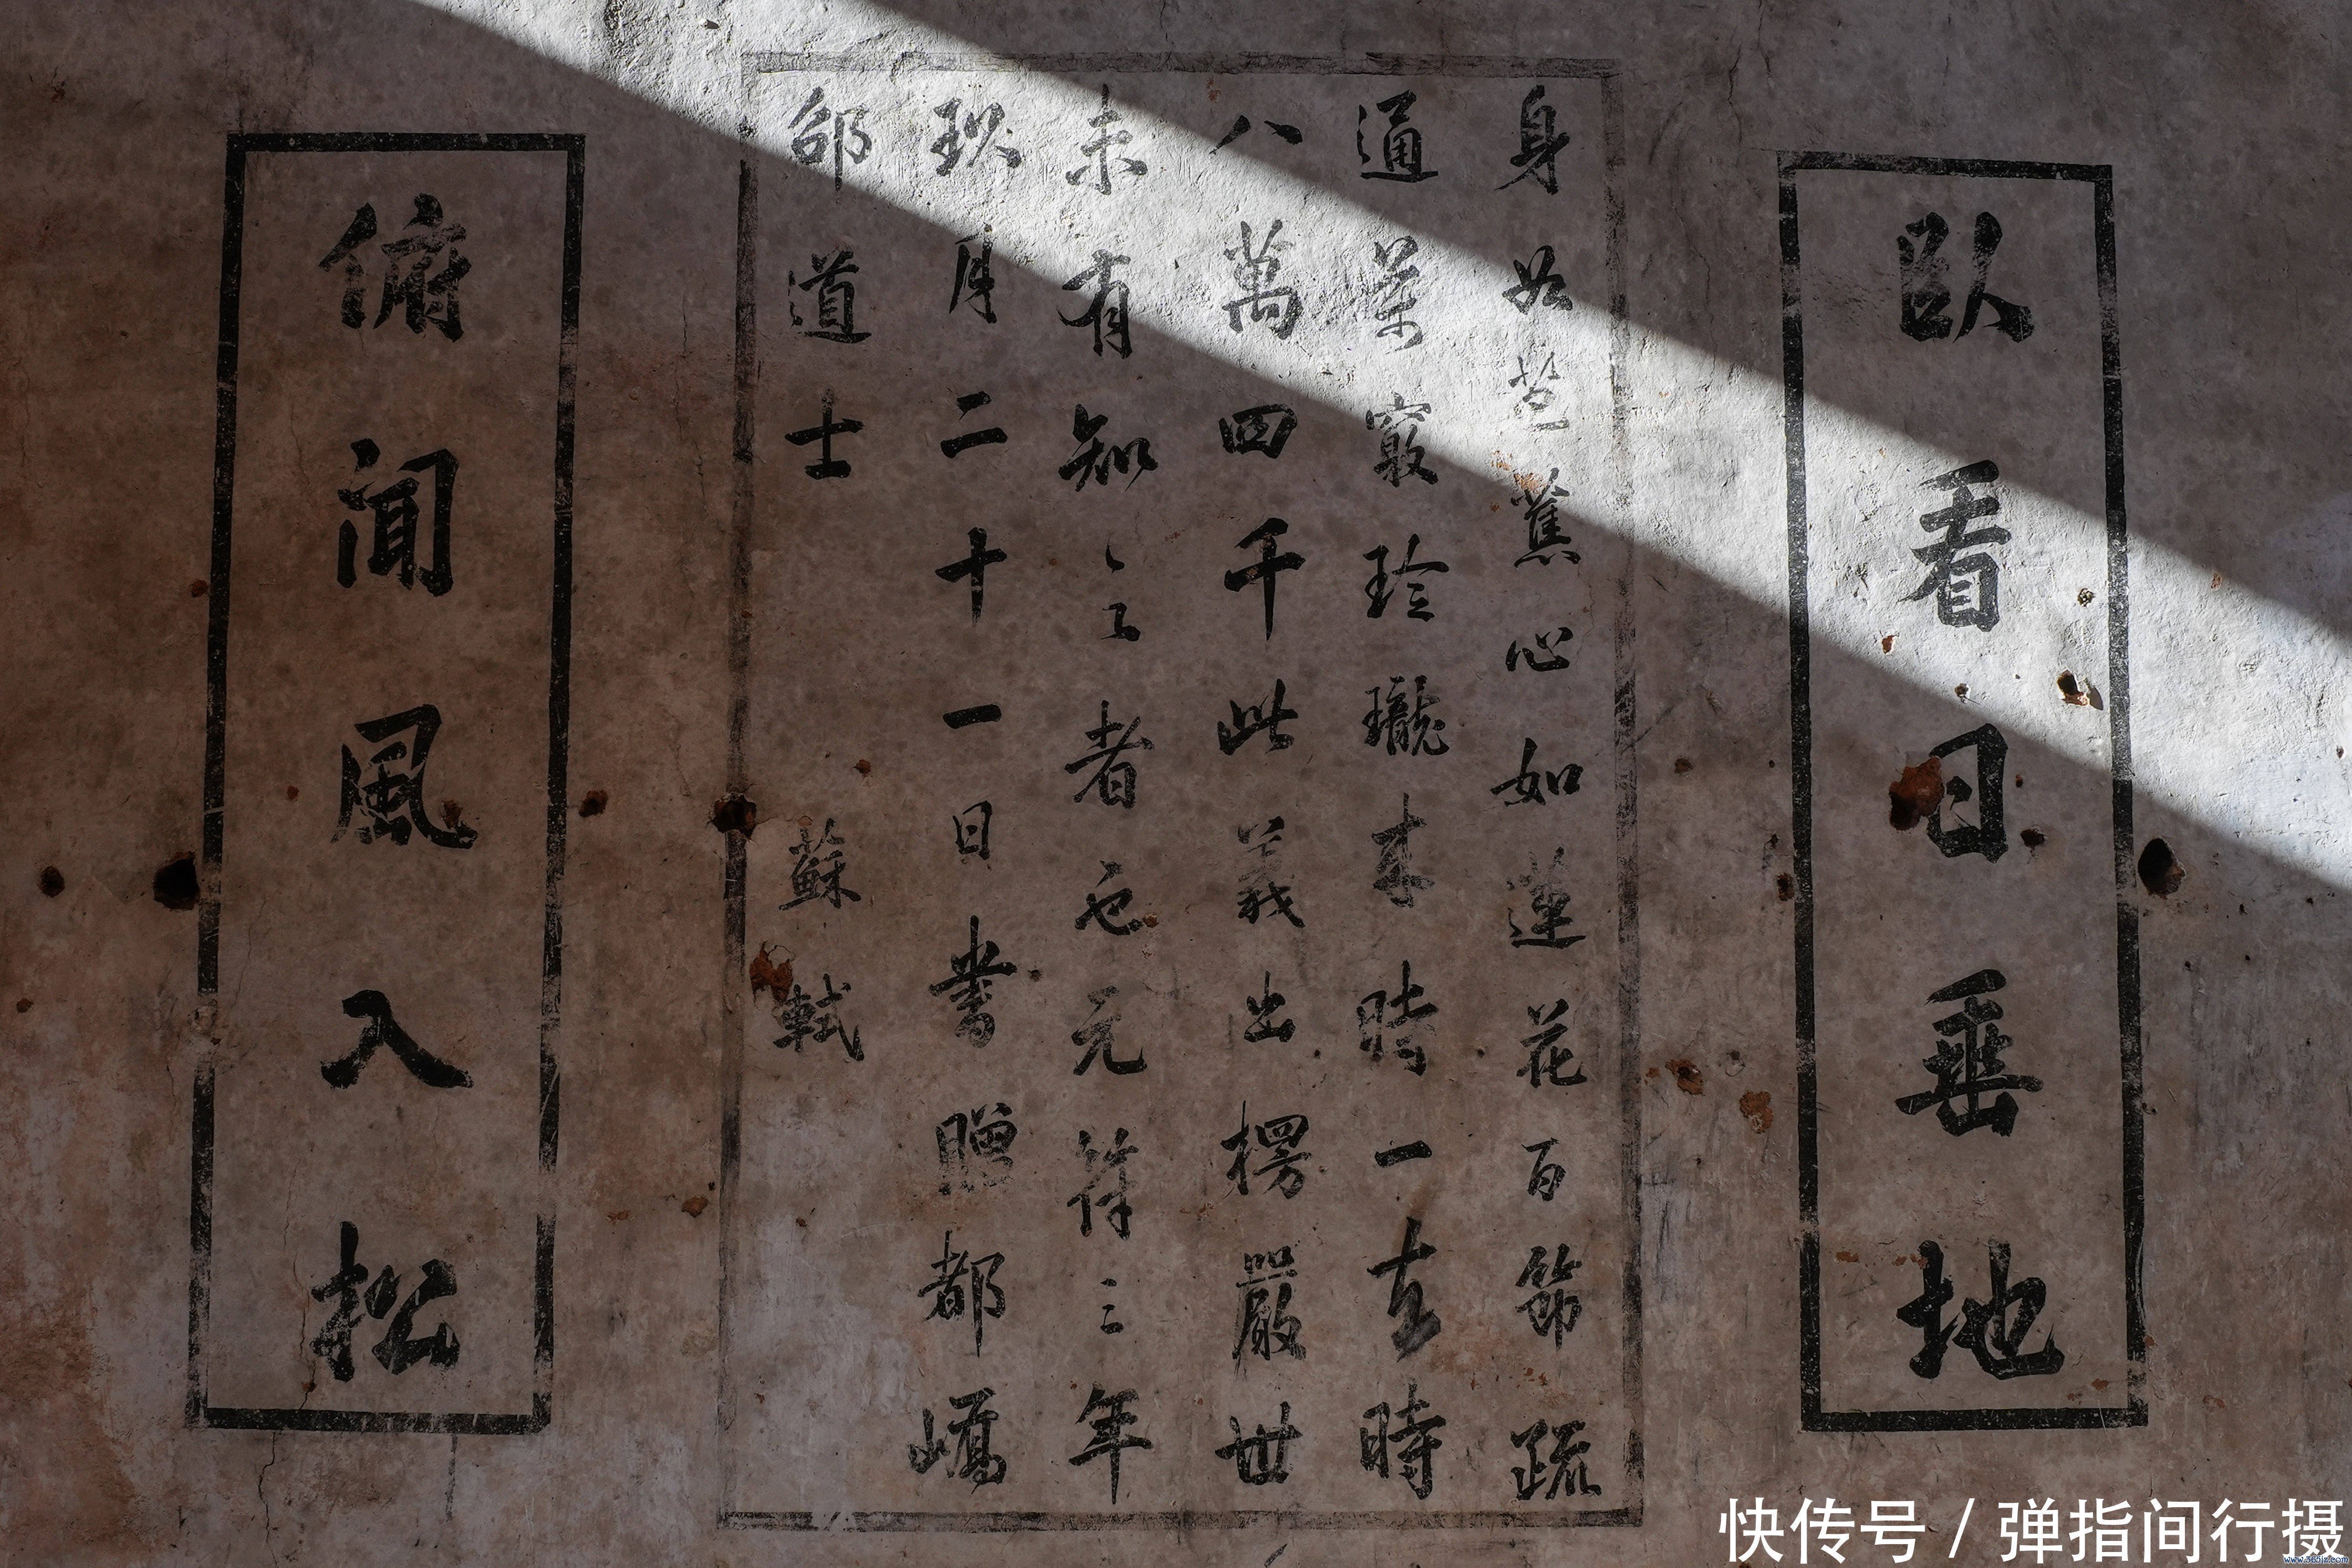 臥看日垂地
身如芭蕉心如蓮花百節疏
通萬竅玲瓏来時一去時
八萬四千此義出楞嚴世
未有知之者也元符三年
玖月二十一日書贈都嶠
邵道士 蘇軾
俯聞風入松
快传号 / 弹指间行摄